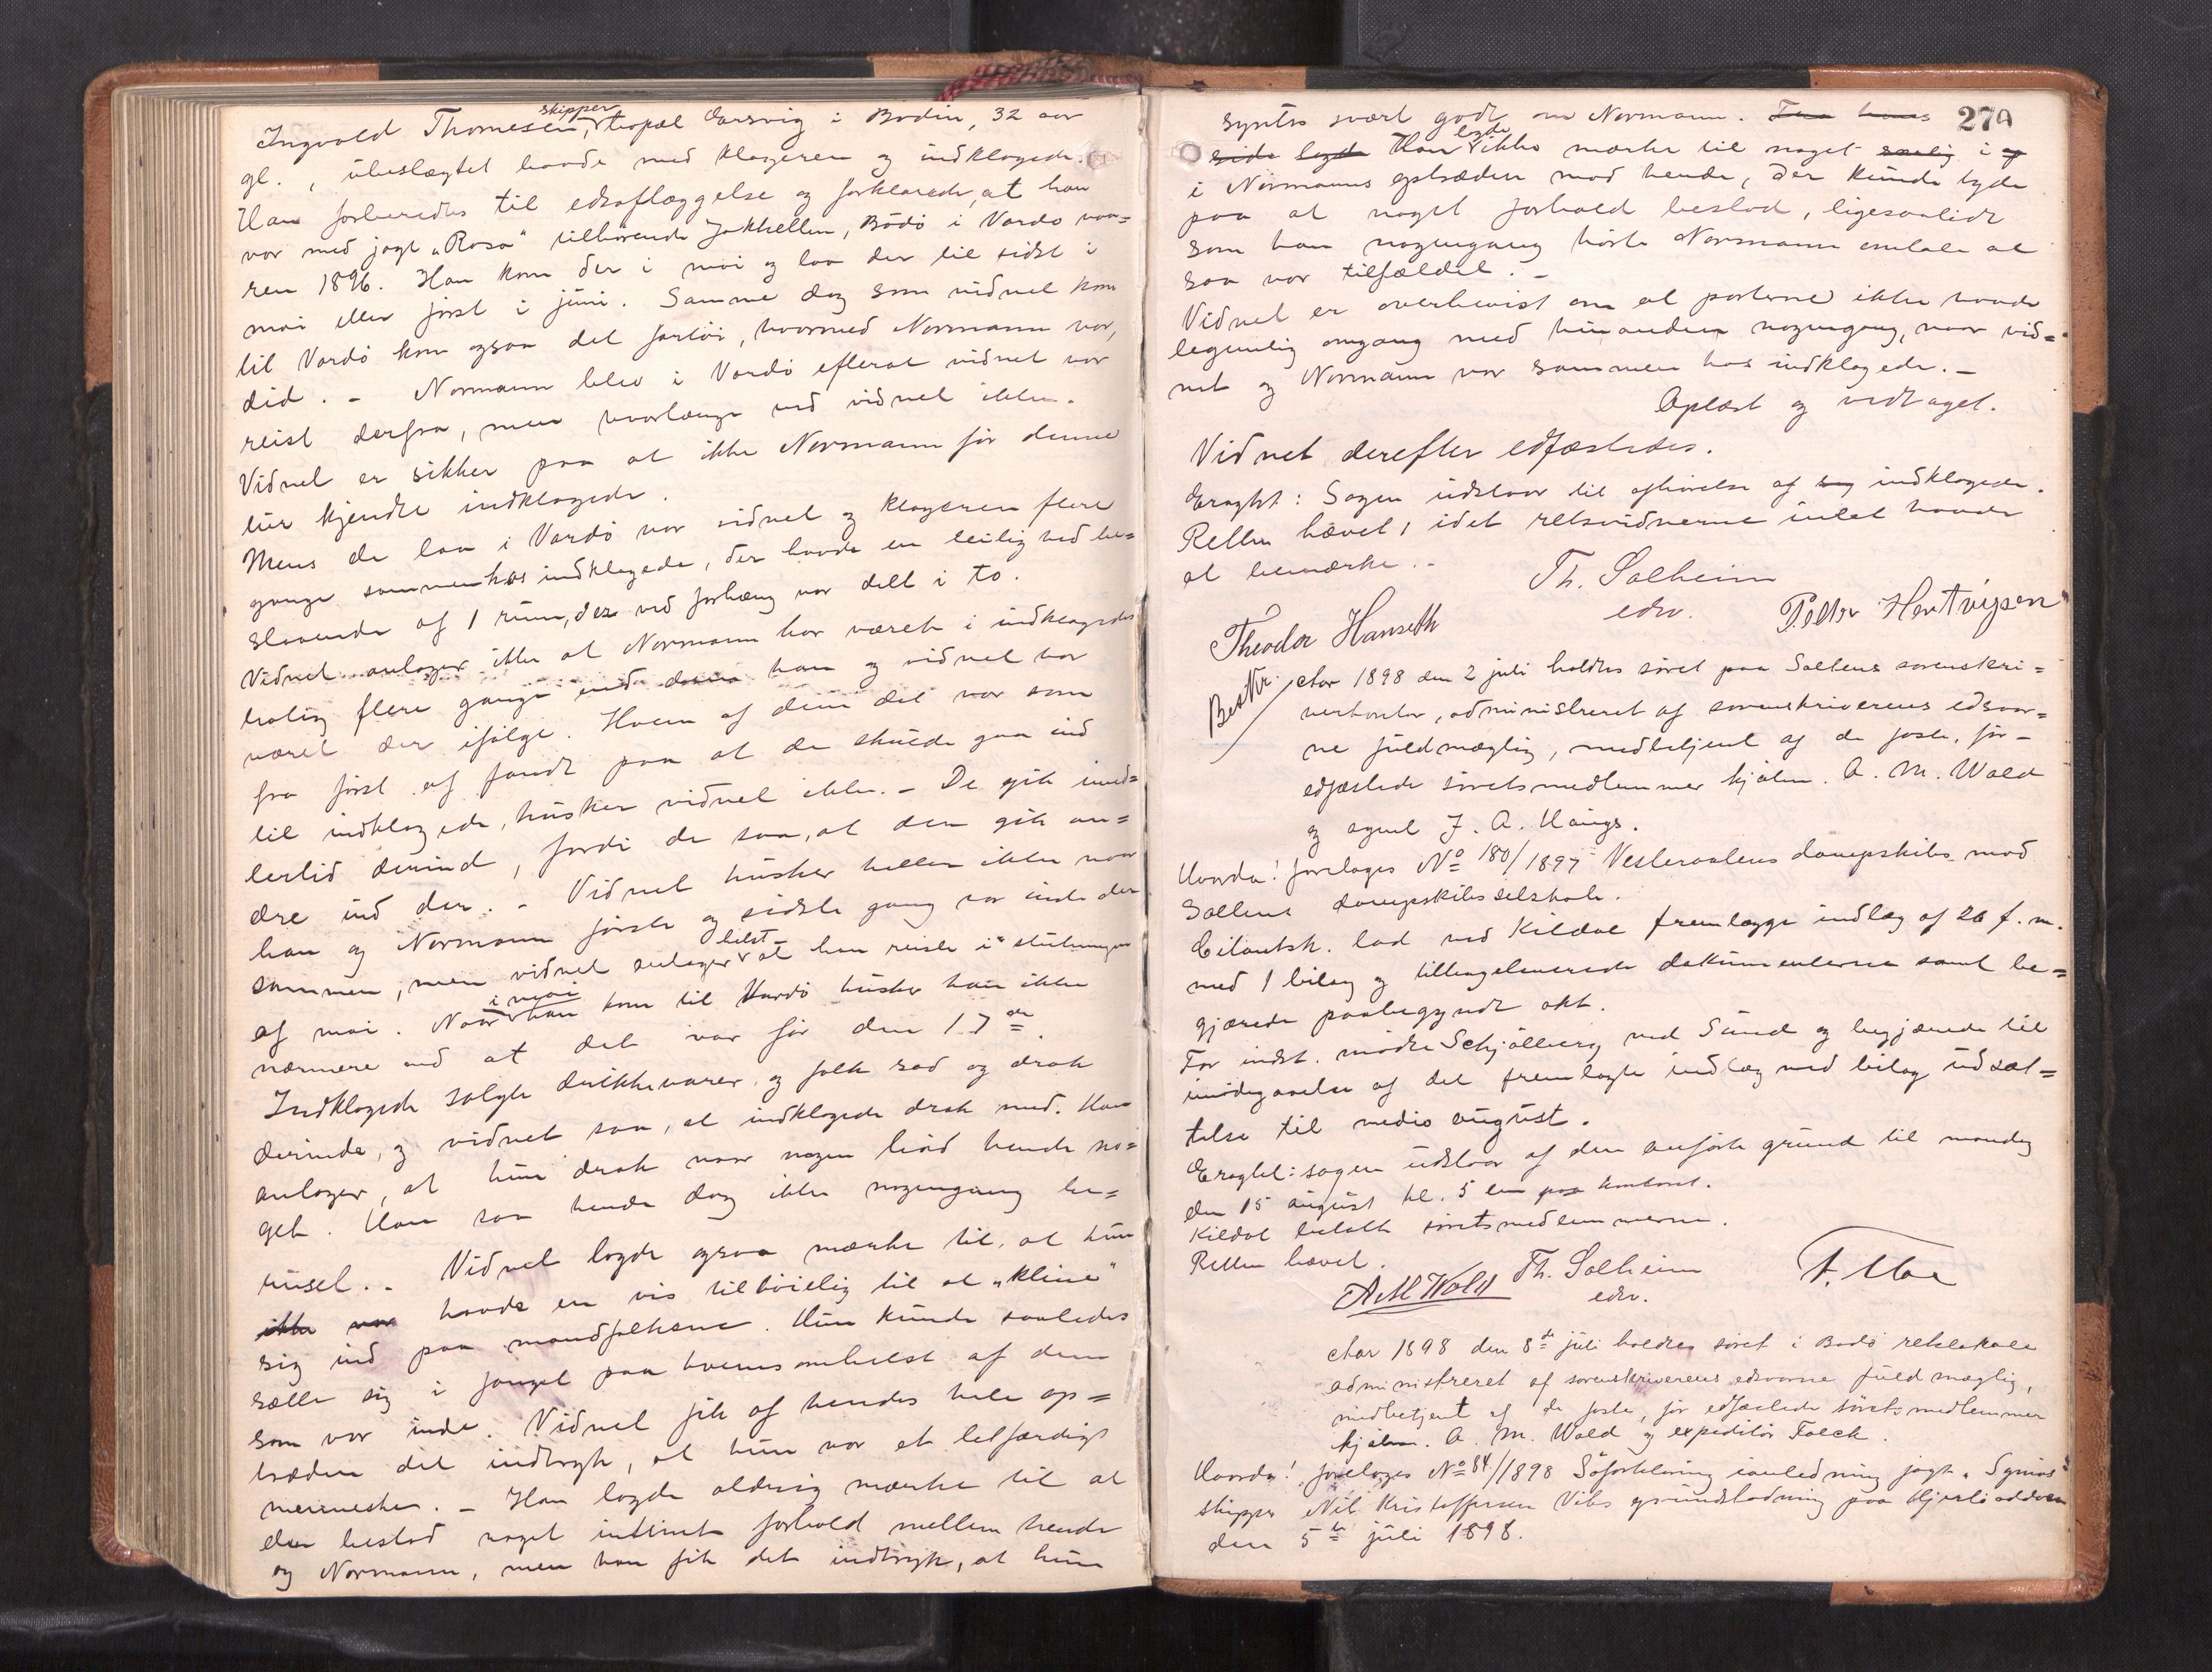 Ingvald Thomesen, skipper, bopæl Aarsvig i Bodin, 32 aar
gl., ubeslægtet baade med klageren og indklagede.
Han forberedtes til edsaflæggelse og forklarede, at han
var med jagt „Rosa" tilhørende Jakhelln, Bodø i Vardø vaa-
ren 1896. Han kom der i mai og laa der til sidst i
mai eller først i juni. Samme dag som vidnet kom
til Vardø kom ogsaa det fartøi, hvormed Normann var,
did. - Normann blev i Vardø efterat vidnet var
reist derfra, men hvorlænge ved vidnet ikke.
Vidnet er sikker paa at ikke Normann før denne
tur kjendte indklagede.
Mens de laa i Vardø var vidnet og klageren flere
gange sammen hos indklagede, der havde en leilighed be=
staaende af 1 rum, der ved forhæng var delt i to.
Vidnet antager ikke at Normann har været i indklagedes
bolig flere gange end han og vidnet har
været der ifølge. Hvem af dem det var som
fra først af fandt paa at de skulde gaa ind
til indklagede, husker vidnet ikke. - De gik imid=
lertid derind, fordi de saa, at der gik an=
dre ind der. - Vidnet husker heller ikke naar
han og Normann første og sidste gang var inde der
sammen, men vidnet antager helst at han reiste i slutningen
af mai. Naar han i mai kom til Vardø husker han ikke
nærmere end at det var før den 17de.
Indklagede solgte drikkevarer og folk sad og drak
derinde, og vidnet saa, at indklagede drak med. Han
antager, at hun drak naar nogen bød hende no=
get. Han saa hende dog ikke nogengang be=
ruset. - Vidnet lagde ogsaa mærke til, at hun
ikke var havde en vis tilbøielig til at „kline"
sig ind paa mandfolkene. Hun kunde saaledes
sætte sig i fanget paa hvemsomhelst af dem
som var inde. Vidnet fik af hendes hele op=
træden det indtryk, at hun var et letfærdigt
menneske. - Han lagde aldrig mærke til at
der bestod noget intimt forhold mellem hende
og Normann, men han fik det indtryk, at hun
270
syntes svært godt om Normann. Fra hans
side lagde Han lagde ikke mærke til noget særlig i
i Normanns optræden mod hende, der kunde tyde
paa at noget forhold bestod, ligesaalidt
som han nogengang hørte Normann omtale at
saa var tilfældet. -
Vidnet er overbevist om at parterne ikke havde
legemlig omgang med hinanden nogengang, naar vid=
net og Normann var sammen hos indklagede. -
Oplæst og vedtaget.
Vidnet derefter edfæstedes.
Eragtet: Sagen udstaar til afhørelse af indklagede.
Retten hævet, idet retsvidnerne intet havde
at bemærke. -
Th. Solheim
edsv.
Theodor Hanseth
Petter Hertvigsen
Aar 1898 den 2 juli holdtes søret paa Saltens sorenskri=
verkontor, administreret af sorenskriverens edsvor=
ne fuldmægtig, medbetjent af de faste, før-
edfæstede søretsmedlemmer kjøbm. A. M. Wold
og agent J. A. Haugs.
Hvorda! foretoges No 180/1897 Vesteraalens dampskibs mod
Saltens dampskibsselskab.
Citantsk. lod ved Kildal fremlægge indlæg af 26 f. m.
med 1 bilag og tilbageleverede dokumenterne samt be=
gjærede paabegyndt akt.
For indst. mødte Schjølberg ved Sund og begjærede til
imødegaaelse af det fremlagte indlæg med bilag udsæt=
telse til medio august.
Eragtet: sagen udstaar af den anførte grund til mandag
den 15 august kl. 5 em paa kontoret.
Kildal betalte søretsmedlemmerne.
Retten hævet.
A M Wold
Th. Solheim
edsv.
Aar 1898 den 8de juli holdtes søret i Bodø retslokale
administreret af sorenskriverens edsvorne fuldmægtig,
medbetjent af de faste, før edfæstede søretsmedlemmer
kjøbm. A. M. Wold og expeditør Falck.
Hvorda! foretoges No 84/1898 Søforklaring i anledning jagt
skipper Nil Kristoffersen Viks grundstødning paa
den 5te juli 1898.